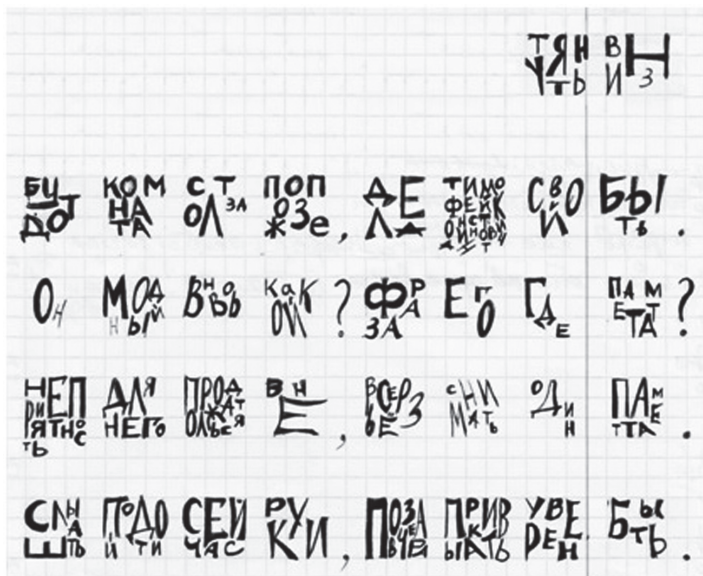 ТЯНУТЬ ВНИЗ
БУДТО КОМНАТА СТОЛ ЗА ПОПОЗЖе, ДЕЛА СВОЙ БЫТЬ.
ОН МОДНЫЙ ВНОВЬ КАКОЙ? ФРАЗА ЕГО ГДЕ ПАМЕТТА?
НЕПРИЯТНОСТЬ ДЛЯ НЕГО ПРОДОЛЖАТЬСЯ ВНЕ, ВСЕРЬЕЗ СНИМАТЬ ОДИН ПАМЕТТА.
СЛЫШАТЬ ПОДОЙТИ СЕЙЧАС РУКИ, ПОЗАВЧЕРА ПРИВЫКАТЬ УВЕРЕН БЫТЬ.